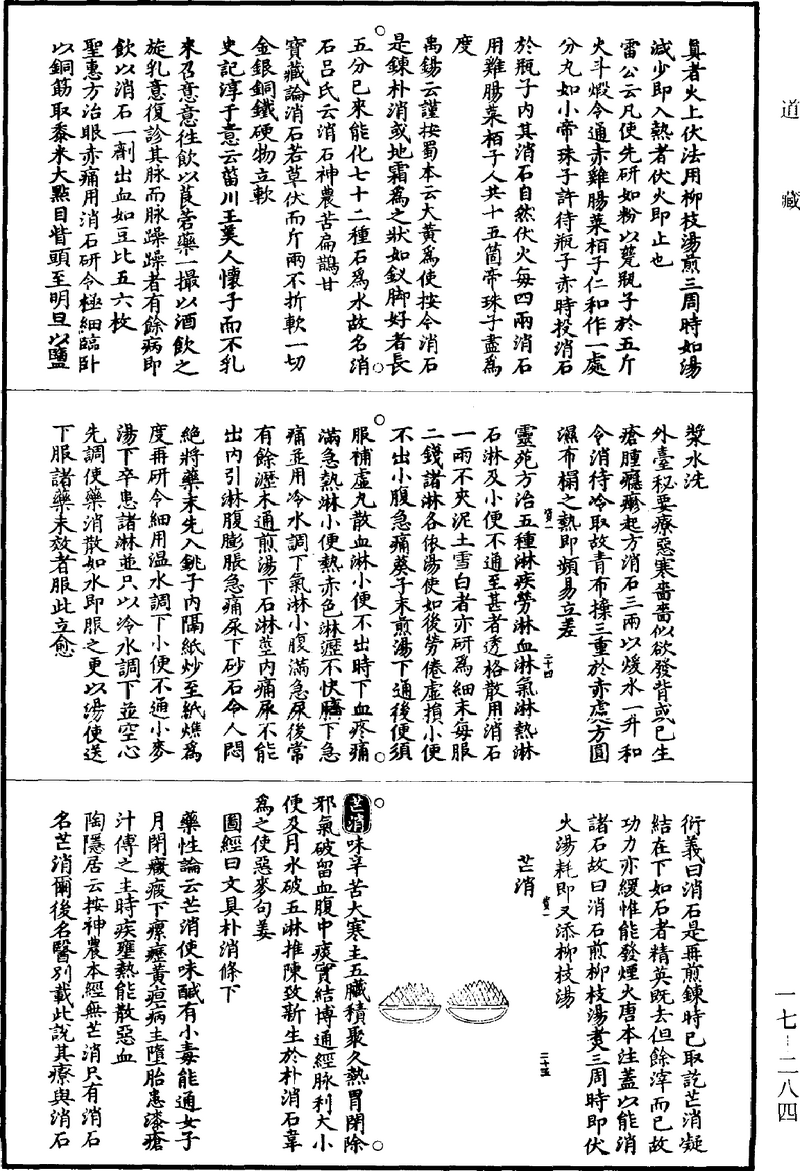 道藏
眞者火上伏法用柳枝湯煎三周時如湯
減少即入熱者伏火即止也
雷公云凡使先研如粉以甆瓶子於五斤
火斗煅令通赤雞腸菜栢子仁和作一處
分丸如小帝珠子許待瓶子赤時投消石
於瓶子内其消石自然伏火每四兩消石
用雞腸菜栢子人共十五箇帝珠子盡爲
度
禹錫云謹按蜀本云大黃爲使按今消石
是鍊朴消或地霜爲之狀如釵脚好者長
五分已來能化七十二種石爲水故名消
石吕氏云消石神農苦扁鵲甘
寶藏論消石若草伏而斤兩不折軟一切
金銀銅鐵硬物立軟
史記淳于意云菑川王美人懷子而不乳
來召意意徃飲以莨菪藥一撮以酒飲之
旋乳意復診其脉而脉躁躁者有餘病即
飲以消石一劑出血如豆比五六枚
聖惠方治眼赤痛用消石研令極細臨卧
以銅筯取黍米大點目眥頭至明旦以鹽
漿水洗
外臺秘要療惡寒嗇嗇似欲發背或已生
瘡腫癮𤺋起方消石三兩以煖水一升和
令消待冷取故青布揲三重於赤處方圓
濕布榻之熱即頻易立差
靈苑方治五種淋疾勞淋血淋氣淋熱淋
石淋及小便不通至甚者透格散用消石
一兩不夾泥土雪白者亦研爲細末每服
二錢諸淋各依湯使如後勞倦虛損小便
不出小腹急痛葵子末煎湯下通後便須
服補虛丸散血淋小便不出時下血疼痛
滿急熱淋小便熱赤色淋瀝不快臍下急
痛並用冷水調下氣淋小腹滿急尿後常
有餘瀝木通煎湯下石淋莖内痛尿不能
出内引淋腹膨脹急痛尿下砂石令人悶
絶將藥末先入銚子内隔紙炒至紙燋爲
度再研令細用温水調下小便不通小麥
湯下卒患諸淋並只以冷水調下並空心
先調使藥消散如水即服之更以湯使送
下服諸藥未效者服此立愈
衍義曰消石是再煎鍊時已取訖芒消凝
結在下如石者精英既去但餘滓而已故
功力亦緩惟能發煙火唐本注蓋以能消
諸石故曰消石煎柳枝湯煑三周時即伏
火湯耗即又添柳枝湯
芒消
芒消味辛苦大寒主五臟積聚久熱胃閉除
邪氣破留血腹中痰實結博通經脉利大小
便及月水破五淋推陳致新生於朴消石韋
爲之使惡麥句姜
圖經曰文具朴消條下
藥性論云芒消使味鹹有小毒能通女子
月閉癥瘕下瘰癧黃疸病主墮胎患漆瘡
汁傅之主時疾壅熱能散惡血
陶隱居云按神農本經無芒消只有消石
名芒消爾後名醫別載此說其療與消石
一七-二八四